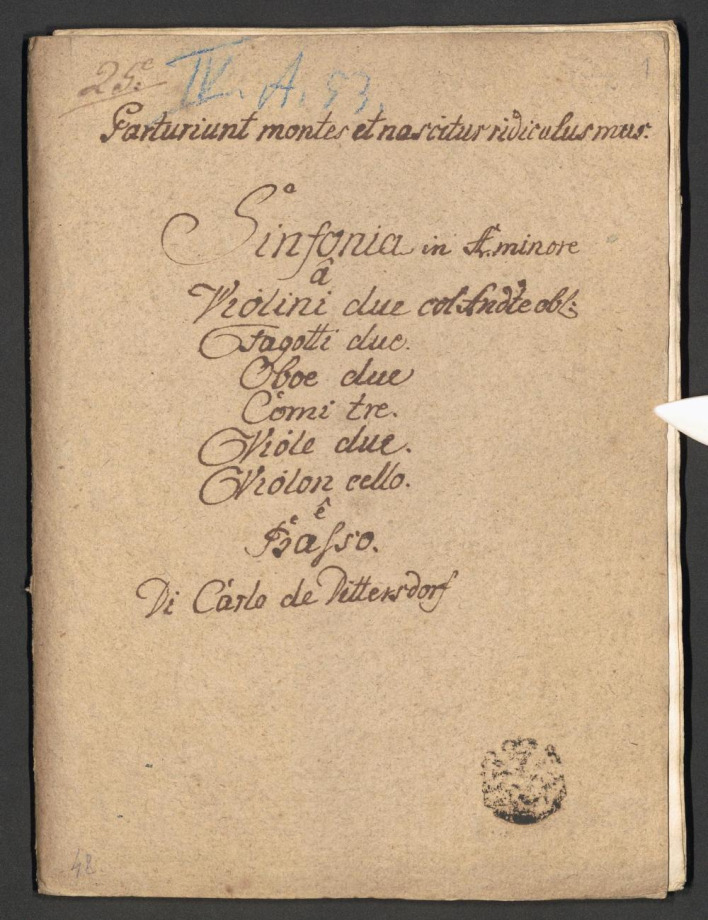 25.
IV. A. 53.
1
Parturiunt montes et nascitur ridiculus mus.
Sinfonia in A minore
â
Violini due col And.te obl:
Fagotti due.
Oboe due
Corni tre.
Viole due.
Violon cello.
ê
Basso.
Di Carlo de Dittersdorf
48.